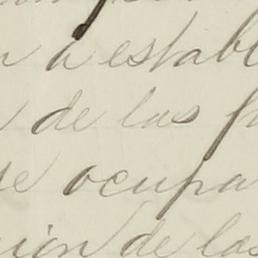 a establ
de las f
se ocupa
ión de las